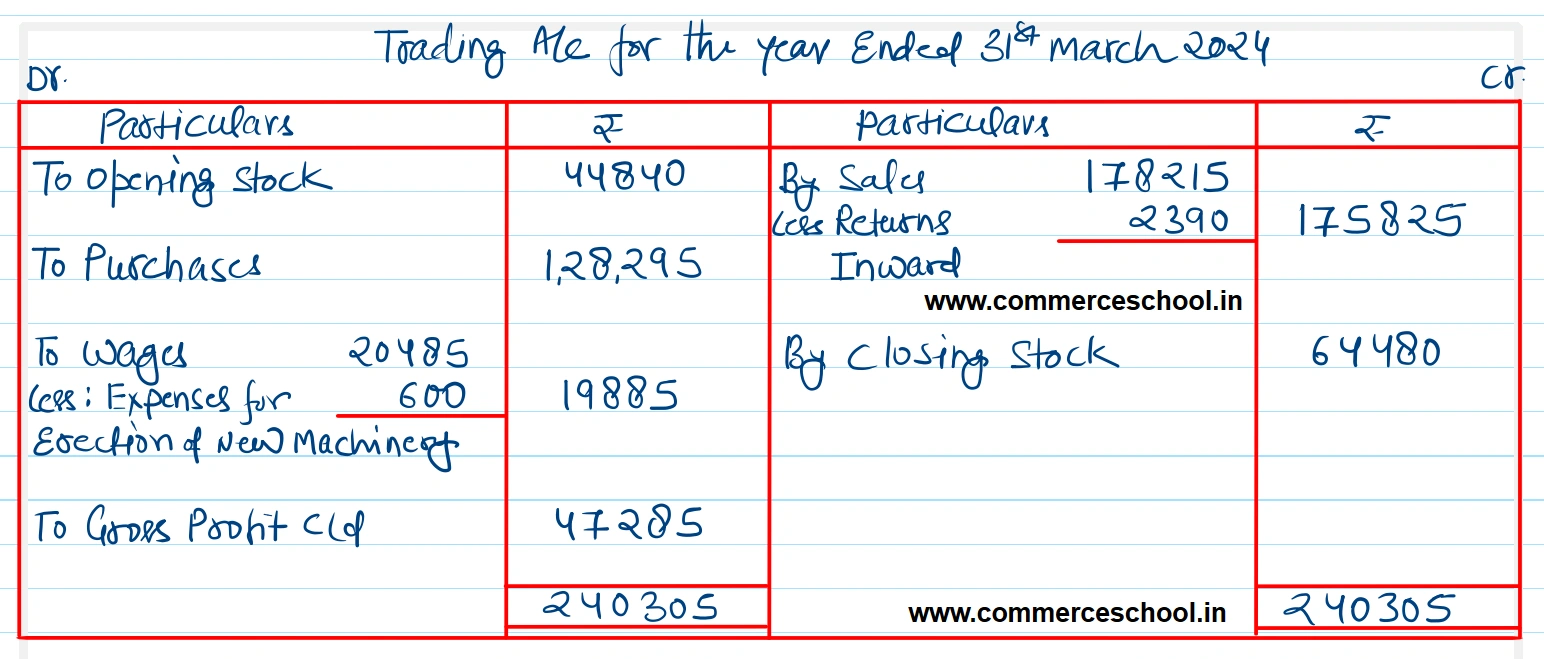 Trading A/c for the year Ended 31st march 2024
Dr. Cr.
Particulars ₹ Particulars ₹
To Opening Stock 44840 By Sales 178215
Less Returns 2390 175825
To Purchases 1,28,295 Inward
www.commerceschool.in
To Wages 20485 By Closing Stock 64480
Less: Expenses for 600 19885
Erection of New Machinery
To Gross Profit c/d 47285
240305 www.commerceschool.in 240305